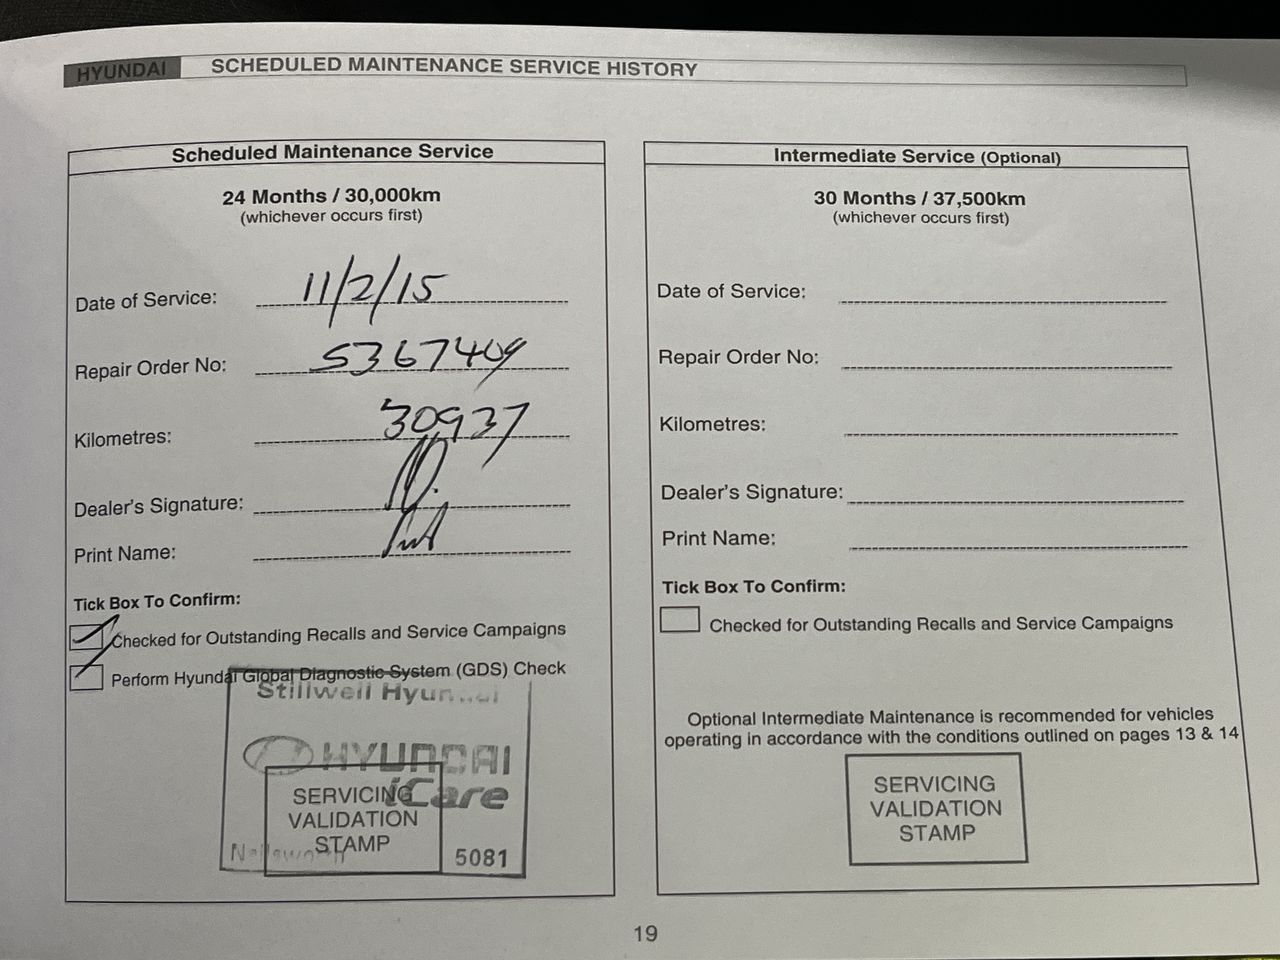 HYUNDAI SCHEDULED MAINTENANCE SERVICE HISTORY
Scheduled Maintenance Service
24 Months / 30,000km
(whichever occurs first)
Date of Service: 11/2/15
Repair Order No: S367409
Kilometres: 30937
Dealer's Signature:
Print Name:
Tick Box To Confirm:
Checked for Outstanding Recalls and Service Campaigns
Perform Hyundai Global Diagnostic System (GDS) Check
Stillwell Hyundai
HYUNDAI
iCare
SERVICING
VALIDATION
STAMP
Nailsworth 5081
Intermediate Service (Optional)
30 Months / 37,500km
(whichever occurs first)
Date of Service:
Repair Order No:
Kilometres:
Dealer's Signature:
Print Name:
Tick Box To Confirm:
Checked for Outstanding Recalls and Service Campaigns
Optional Intermediate Maintenance is recommended for vehicles
operating in accordance with the conditions outlined on pages 13 & 14
SERVICING
VALIDATION
STAMP
19